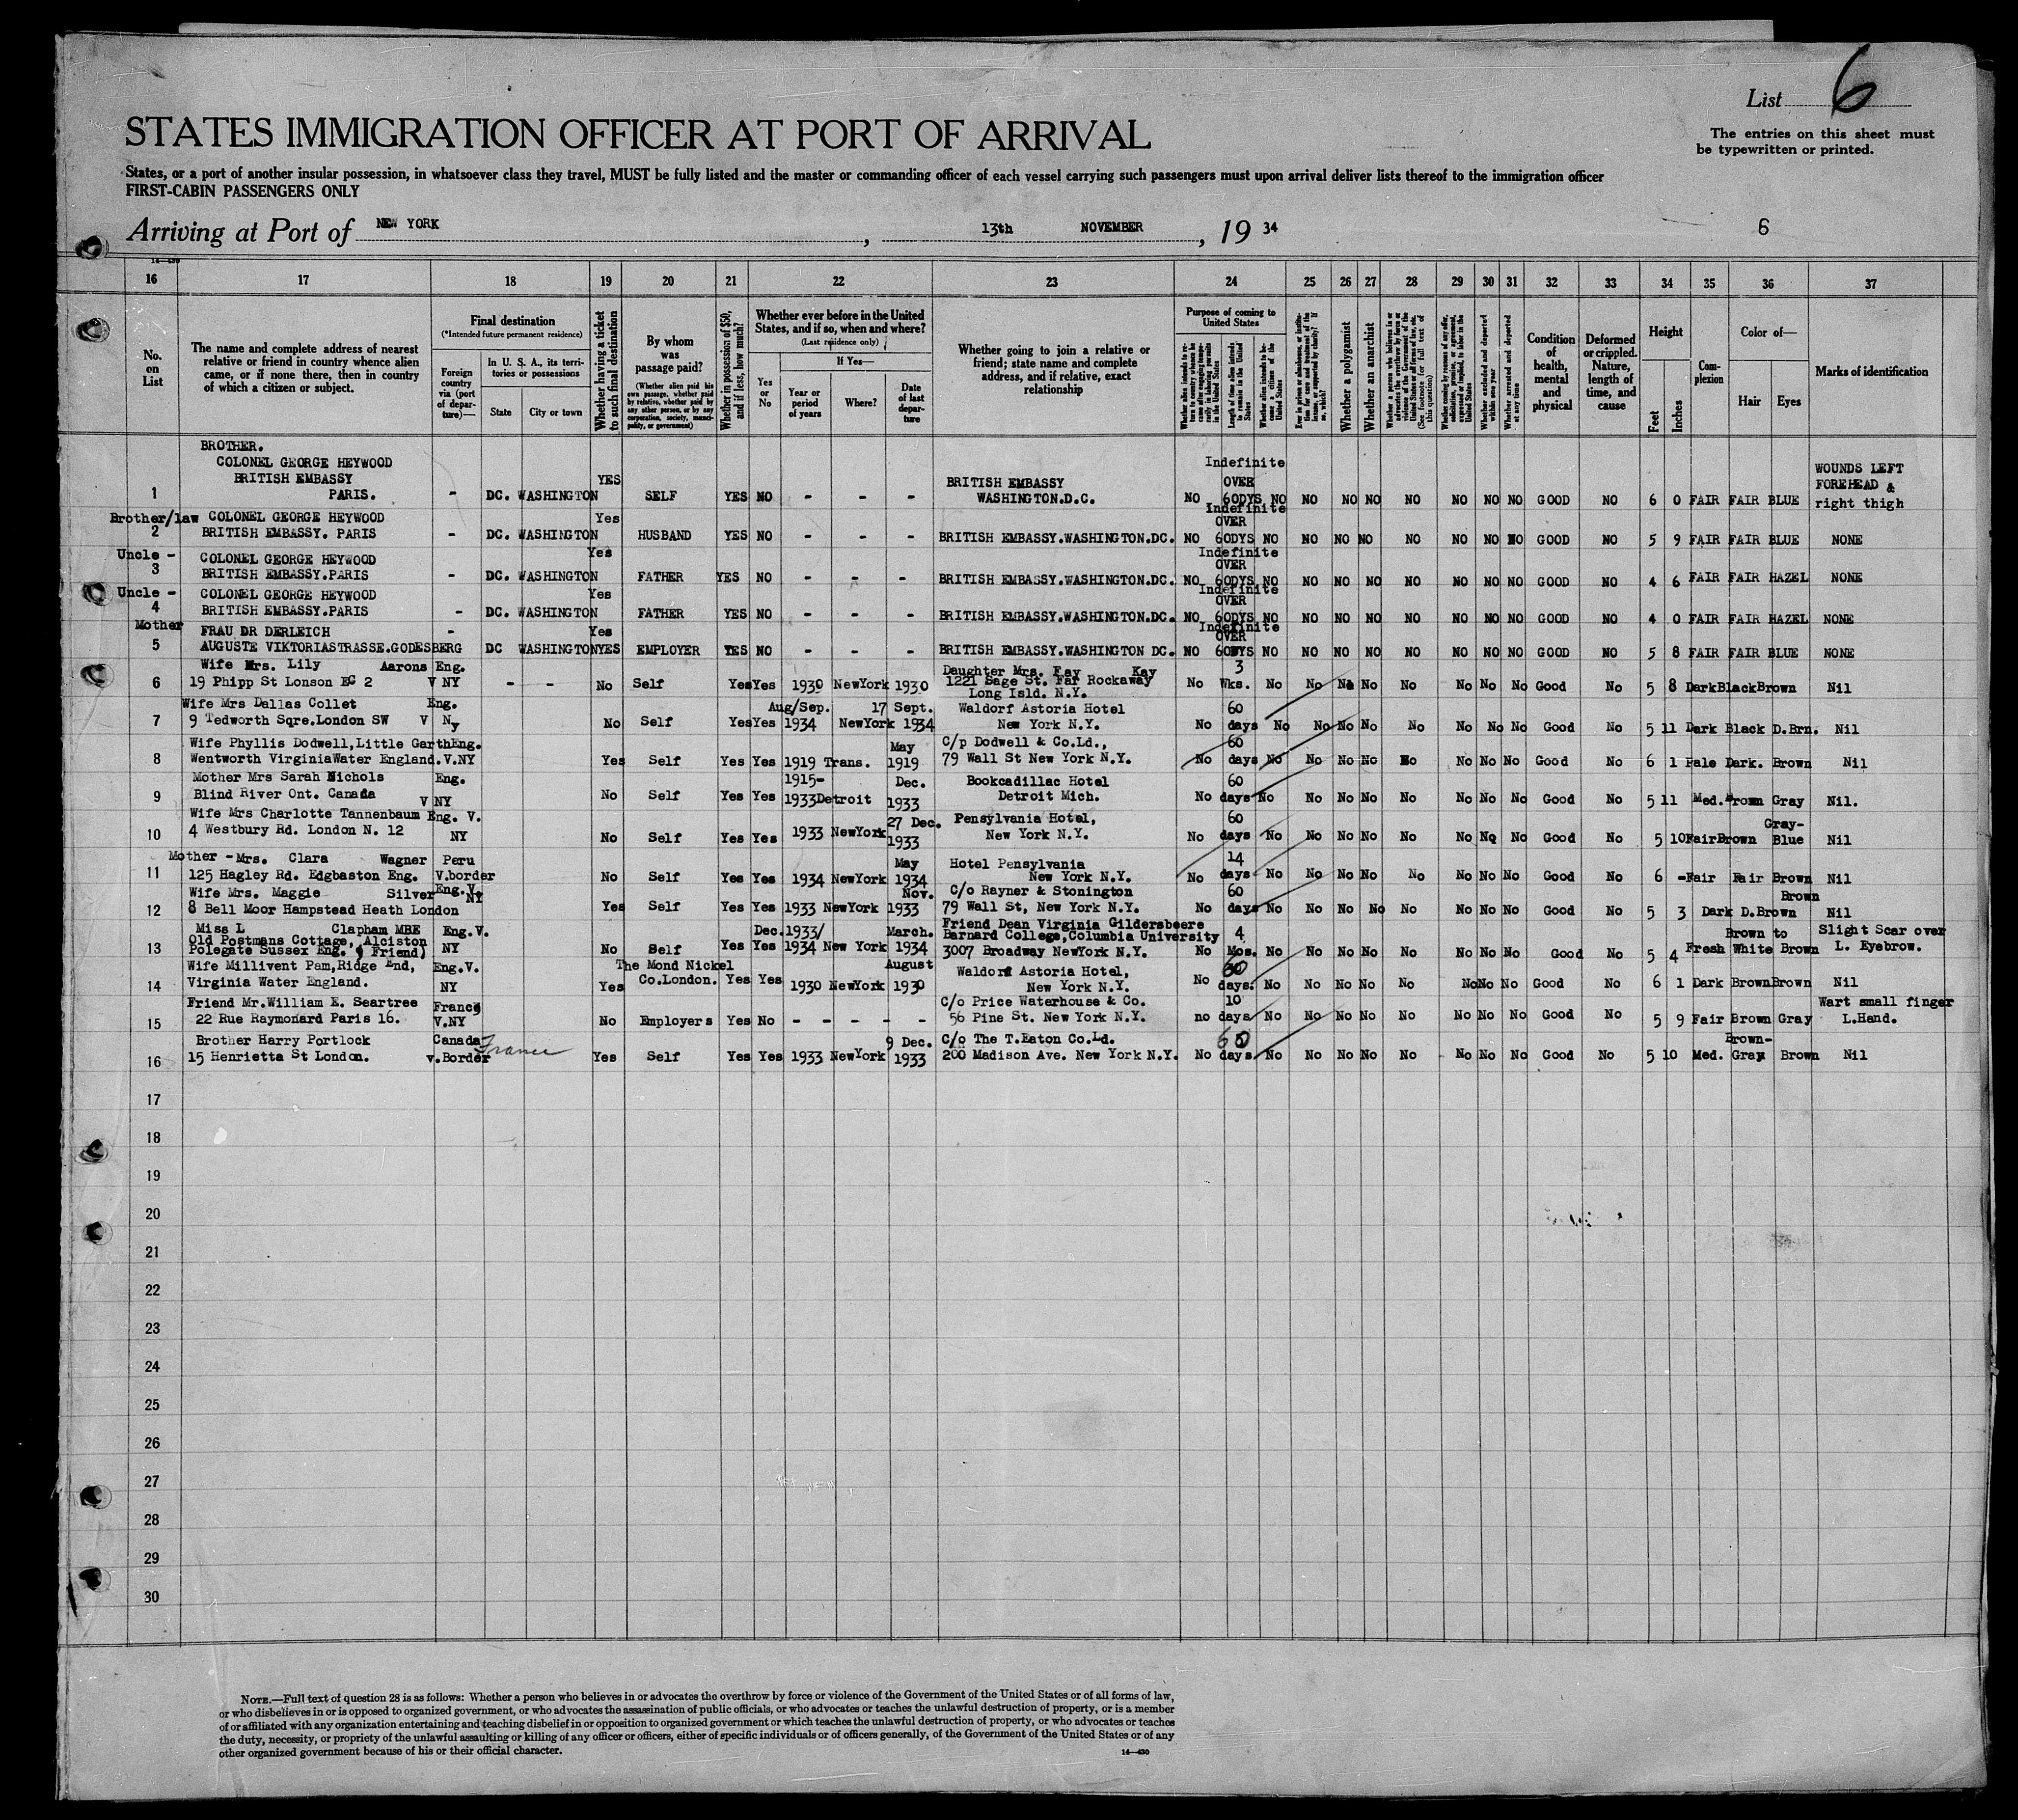 List 6
STATES IMMIGRATION OFFICER AT PORT OF ARRIVAL
The entries on this sheet must
be typewritten or printed.
States, or a port of another insular possession, in whatsoever class they travel, MUST be fully listed and the master or commanding officer of each vessel carrying such passengers must upon arrival deliver lists thereof to the immigration officer
FIRST-CABIN PASSENGERS ONLY
Arriving at Port of NEW YORK, 13th NOVEMBER, 19 34 6
14—430
16 17 18 19 20 21 22 23 24 25 26 27 28 29 30 31 32 33 34 35 36 37
No. on List
The name and complete address of nearest relative or friend in country whence alien came, or if none there, then in country of which a citizen or subject.
Final destination
(*Intended future permanent residence)
Foreign country via (port of departure)—
In U. S. A., its territories or possessions
State City or town
Whether having a ticket to such final destination
By whom was passage paid?
(Whether alien paid his own passage, whether paid by relative, whether paid by any other person, or by any corporation, society, municipality, or government)
Whether in possession of $50, and if less, how much?
Whether ever before in the United States, and if so, when and where?
(Last residence only)
If Yes—
Yes or No
Year or period of years
Where?
Date of last departure
Whether going to join a relative or friend; state name and complete address, and if relative, exact relationship
Purpose of coming to United States
Length of time alien intends to remain in the United States
Whether alien intends to become a citizen of the United States
Whether a polygamist
Whether an anarchist
Whether excluded and deported within one year
Whether arrested and deported at any time
Condition of health, mental and physical
Deformed or crippled. Nature, length of time, and cause
Height
Feet Inches
Complexion
Color of—
Hair Eyes
Marks of identification
BROTHER.
COLONEL GEORGE HEYWOOD Indefinite
BRITISH EMBASSY YES BRITISH EMBASSY OVER WOUNDS LEFT FOREHEAD &
1 PARIS. - DC. WASHINGTON SELF YES NO - - - WASHINGTON.D.C. NO 60DYS NO NO NO NO NO NO NO NO GOOD NO 6 0 FAIR FAIR BLUE right thigh
Brother/law COLONEL GEORGE HEYWOOD Yes Indefinite OVER
2 BRITISH EMBASSY. PARIS - DC. WASHINGTON HUSBAND YES NO - - - BRITISH EMBASSY.WASHINGTON.DC. NO 60DYS NO NO NO NO NO NO NO NO GOOD NO 5 9 FAIR FAIR BLUE NONE
Uncle - COLONEL GEORGE HEYWOOD Yes Indefinite OVER
3 BRITISH EMBASSY.PARIS - DC. WASHINGTON FATHER YES NO - - - BRITISH EMBASSY.WASHINGTON.DC. NO 60DYS NO NO NO NO NO NO NO NO GOOD NO 4 6 FAIR FAIR HAZEL NONE
Uncle - COLONEL GEORGE HEYWOOD Yes Indefinite OVER
4 BRITISH EMBASSY.PARIS - DC. WASHINGTON FATHER YES NO - - - BRITISH EMBASSY.WASHINGTON.DC. NO 60DYS NO NO NO NO NO NO NO NO GOOD NO 4 0 FAIR FAIR HAZEL NONE
Mother FRAU DR DERLEICH - Yes Indefinite OVER
5 AUGUSTE VIKTORIASTRASSE.GODESBERG DC WASHINGTON YES EMPLOYER YES NO - - - BRITISH EMBASSY.WASHINGTON DC. NO 60DYS NO NO NO NO NO NO NO NO GOOD NO 5 8 FAIR FAIR BLUE NONE
Wife Mrs. Lily Aarons Eng. Daughter Mrs. Fay Kay 3
6 19 Phipp St Lonson EC 2 V NY - - No Self Yes Yes 1930 NewYork 1930 1221 Sage St. Far Rockaway No Wks. No No No No No No No No Good No 5 8 Dark Black Brown Nil
Long Isld. N.Y.
Wife Mrs Dallas Collet Eng. Aug/Sep. 17 Sept. Waldorf Astoria Hotel 60
7 9 Tedworth Sqre.London SW V Ny No Self Yes Yes 1934 NewYork 1934 New York N.Y. No days No No No No No No No No Good No 5 11 Dark Black D.Brn. Nil
Wife Phyllis Dodwell,Little Garth Eng. May C/p Dodwell & Co.Ld., 60
8 Wentworth VirginiaWater England. V.NY Yes Self Yes Yes 1919 Trans. 1919 79 Wall St New York N.Y. No days No No No No No No No No Good No 6 1 Pale Dark. Brown Nil
Mother Mrs Sarah Nichols Eng. 1915- Dec. Bookcadillac Hotel 60
9 Blind River Ont. Canada V NY No Self Yes Yes 1933 Detroit 1933 Detroit Mich. No days No No No No No No No No Good No 5 11 Med. Brown Gray Nil.
Wife Mrs Charlotte Tannenbaum Eng. V. 27 Dec. Pensylvania Hotel, 60 Gray-
10 4 Westbury Rd. London N. 12 NY No Self Yes Yes 1933 NewYork 1933 New York N.Y. No days No No No No No No No No Good No 5 10 Fair Brown Blue Nil
Mother - Mrs. Clara Wagner Peru May Hotel Pensylvania 14
11 125 Hagley Rd. Edgbaston Eng. V.border No Self Yes Yes 1934 NewYork 1934 New York N.Y. No days No No No No No No No No Good No 6 - Fair Fair Brown Nil
Wife Mrs. Maggie Silver Eng.V. NY Nov. C/o Rayner & Stonington 60 Brown
12 8 Bell Moor Hampstead Heath London Yes Self Yes Yes 1933 NewYork 1933 79 Wall St, New York N.Y. No days No No No No No No No No Good No 5 3 Dark D.Brown Nil
Miss L Clapham MBE Eng.V. Dec.1933/ March. Friend Dean Virginia Gildersbeere Slight Scar over
Old Postmans Cottage, Alciston Barnard College,Columbia University 4 Brown to L. Eyebrow.
13 Polegate Sussex Eng. ( Friend) NY No Self Yes Yes 1934 New York 1934 3007 Broadway NewYork N.Y. No Mos. No No No No No No No No Good No 5 4 Fresh White Brown
Wife Millivent Pam,Ridge End, Eng.V. The Mond Nickel August Waldorf Astoria Hotel, 60
14 Virginia Water England. NY Yes Co.London. Yes Yes 1930 NewYork 1930 New York N.Y. No days. No No No No No No No No Good No 6 1 Dark Brown Brown Nil
Friend Mr.William E. Seartree France C/o Price Waterhouse & Co. 10 Wart small finger
15 22 Rue Raymonard Paris 16. V.NY No Employers Yes No - - - - - 56 Pine St. New York N.Y. no days No No No No No No No No Good No 5 9 Fair Brown Gray L.Hand.
Brother Harry Portlock Canada France 9 Dec. C/o The T.Eaton Co.Ld. 60 Brown-
16 15 Henrietta St London. v.Border Yes Self Yes Yes 1933 NewYork 1933 200 Madison Ave. New York N.Y. No days No No No No No No No No Good No 5 10 Med. Gray Brown Nil
17
18
19
20
21
22
23
24
25
26
27
28
29
30
NOTE.—Full text of question 28 is as follows: Whether a person who believes in or advocates the overthrow by force or violence of the Government of the United States or of all forms of law,
or who disbelieves in or is opposed to organized government, or who advocates the assassination of public officials, or who advocates or teaches the unlawful destruction of property, or is a member
of or affiliated with any organization entertaining and teaching disbelief in or opposition to organized government or which teaches the unlawful destruction of property, or who advocates or teaches
the duty, necessity, or propriety of the unlawful assaulting or killing of any officer or officers, either of specific individuals or of officers generally, of the Government of the United States or of any
other organized government because of his or their official character.
14—430